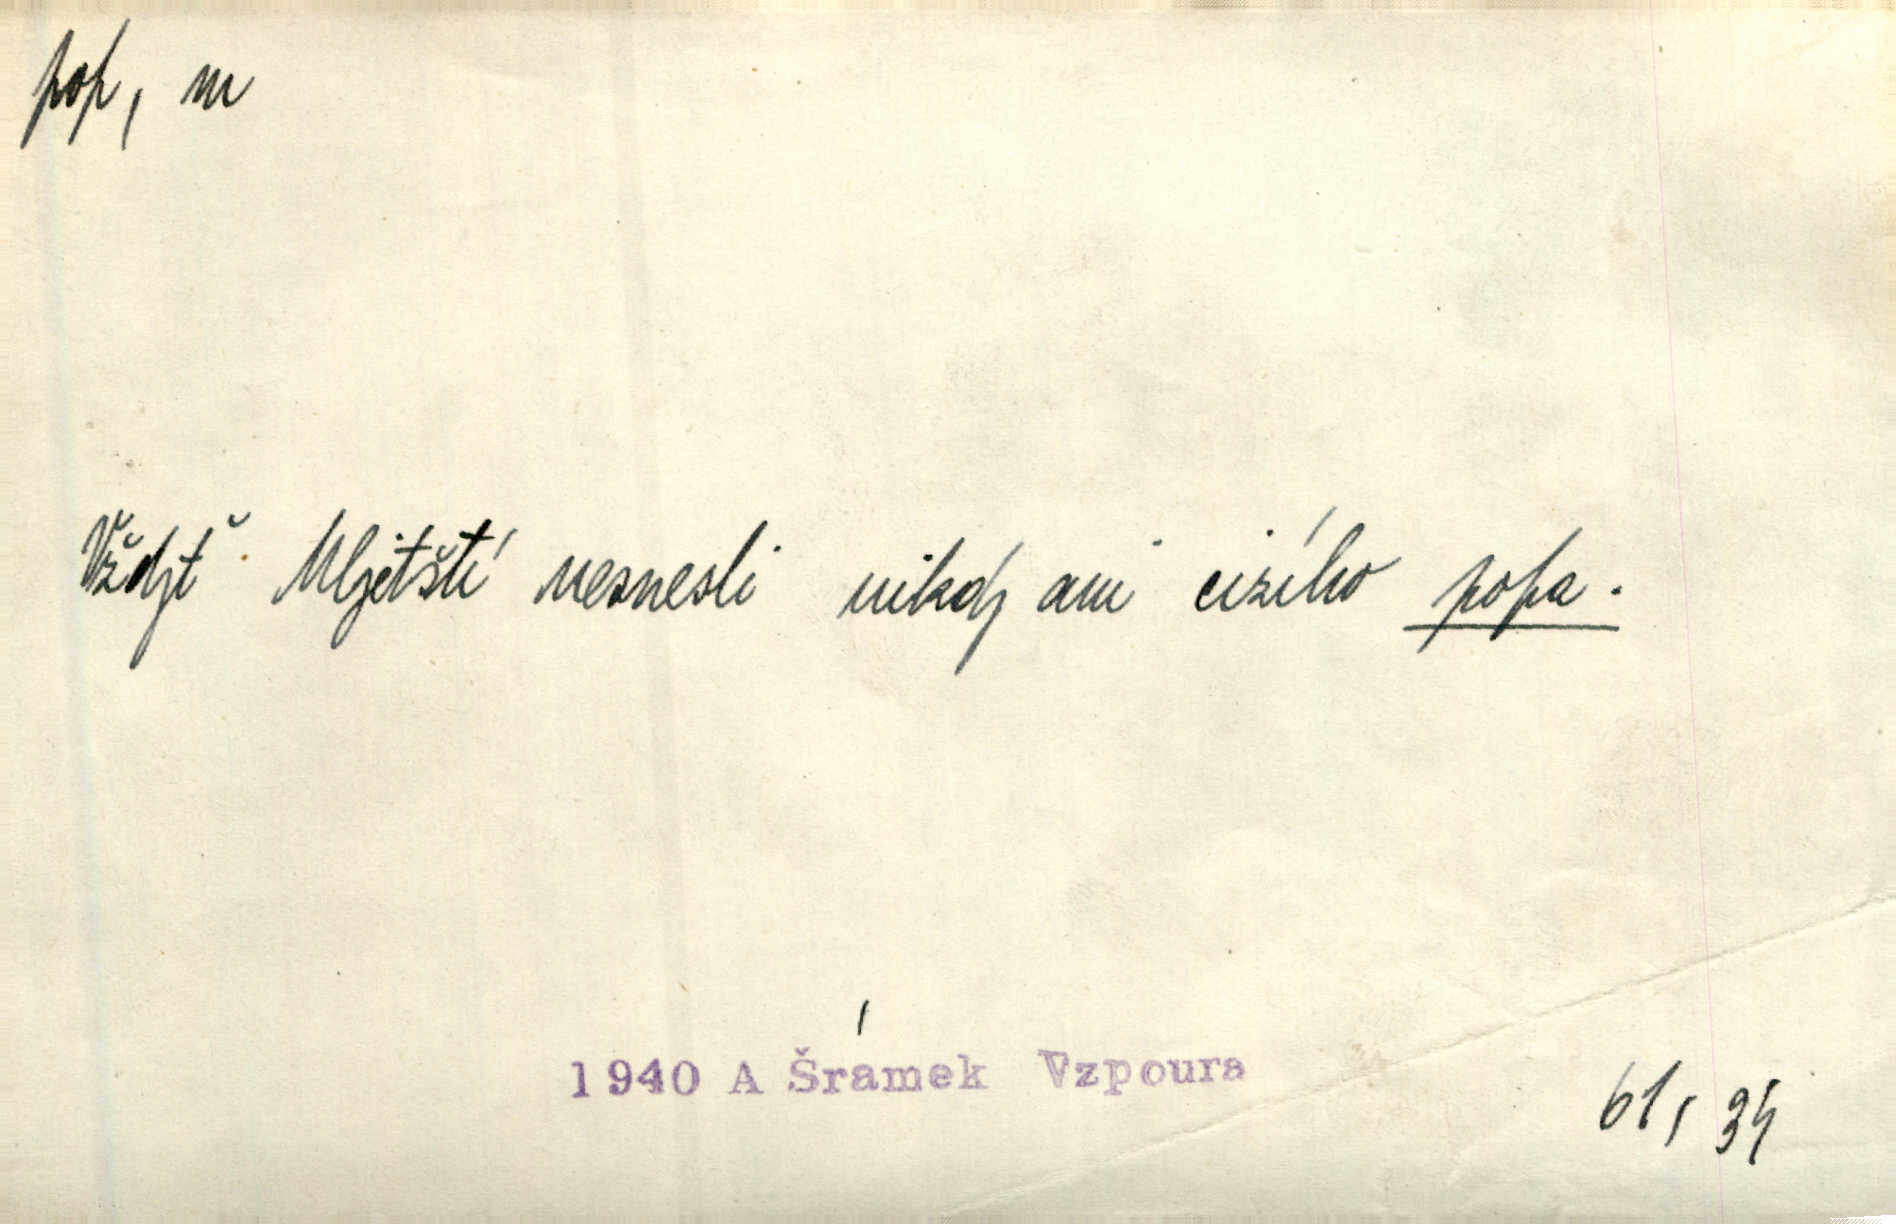 pop, m
Vždyť Mljetští nesnesli nikdy ani cizího popa.
1940 A Šrámek Vzpoura
61, 34